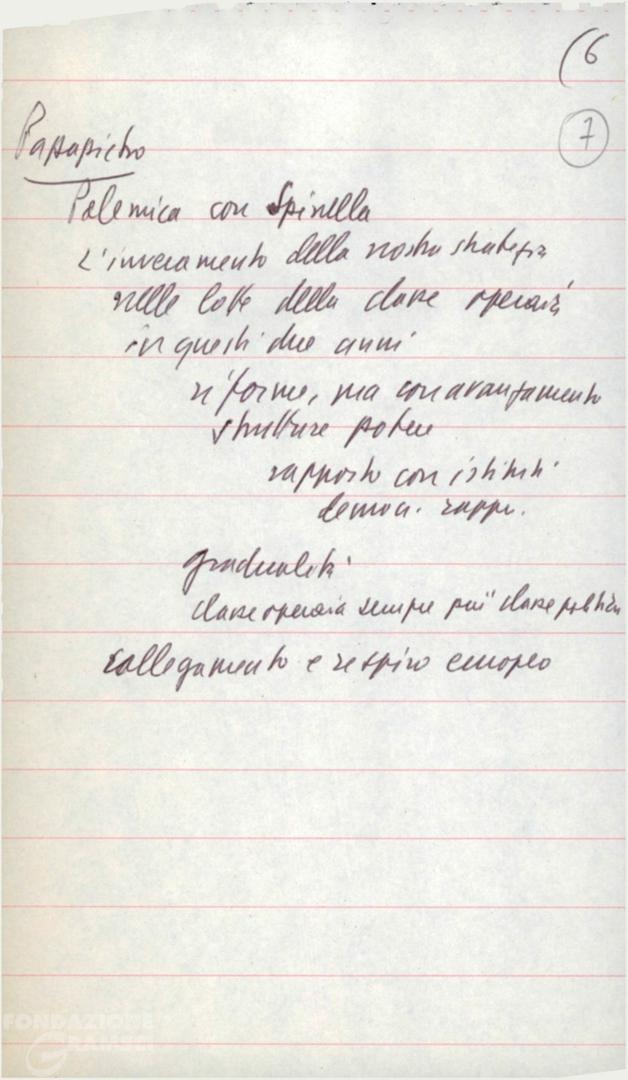 (6
7
Papapietro
Polemica con Spinella
L'inveramento della nostra strategia
nelle lotte della classe operaia
in questi due anni
riforme, ma con avanzamento
strutture potere
rapporto con istituti
democr. rappr.
gradualità
classe operaia sempre più classe politica
collegamento e respiro europeo
FONDAZIONE
GRAMSCI